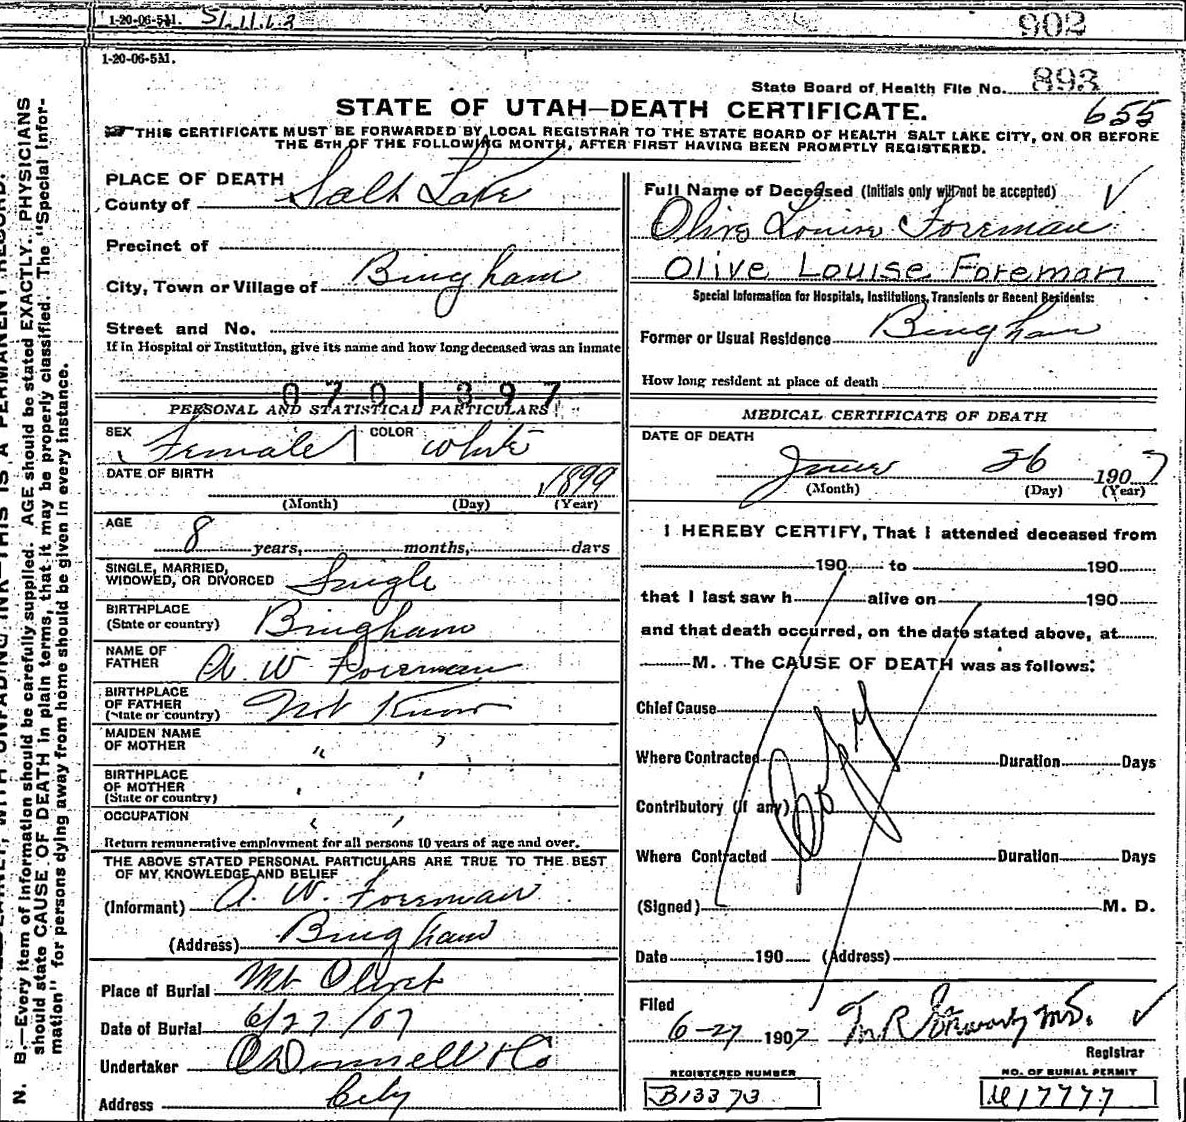 1-20-06-5M.
902
1-20-06-5M.
State Board of Health File No. 893
655
STATE OF UTAH—DEATH CERTIFICATE.
THIS CERTIFICATE MUST BE FORWARDED BY LOCAL REGISTRAR TO THE STATE BOARD OF HEALTH SALT LAKE CITY, ON OR BEFORE
THE 5TH OF THE FOLLOWING MONTH, AFTER FIRST HAVING BEEN PROMPTLY REGISTERED.
N. B.—Every item of information should be carefully supplied. AGE should be stated EXACTLY. PHYSICIANS
should state CAUSE OF DEATH in plain terms, that it may be properly classified. The "Special Infor-
mation" for persons dying away from home should be given in every instance.
PLACE OF DEATH
County of Salt Lake
Precinct of
City, Town or Village of Bingham
Street and No.
If in Hospital or Institution, give its name and how long deceased was an inmate
0701397
PERSONAL AND STATISTICAL PARTICULARS
SEX Female COLOR White
DATE OF BIRTH 1899
(Month) (Day) (Year)
AGE
8 years, months, days
SINGLE, MARRIED,
WIDOWED, OR DIVORCED Single
BIRTHPLACE
(State or country) Bingham
NAME OF
FATHER A. W. Foreman
BIRTHPLACE
OF FATHER
(State or country) Not Know
MAIDEN NAME
OF MOTHER " "
BIRTHPLACE
OF MOTHER
(State or country) " "
OCCUPATION " "
Return remunerative employment for all persons 10 years of age and over.
THE ABOVE STATED PERSONAL PARTICULARS ARE TRUE TO THE BEST
OF MY KNOWLEDGE AND BELIEF
(Informant) A. W. Foreman
(Address) Bingham
Place of Burial Mt Olivet
Date of Burial 6/27/07
Undertaker O'Donnell & Co
Address City
Full Name of Deceased (Initials only will not be accepted)
Olive Louise Foreman
Olive Louise Foreman
Special Information for Hospitals, Institutions, Transients or Recent Residents:
Former or Usual Residence Bingham
How long resident at place of death
MEDICAL CERTIFICATE OF DEATH
DATE OF DEATH
June 26 1907
(Month) (Day) (Year)
I HEREBY CERTIFY, That I attended deceased from
190 to 190
that I last saw h alive on 190
and that death occurred, on the date stated above, at
M. The CAUSE OF DEATH was as follows:
Chief Cause
Where Contracted Duration Days
Contributory (if any)
Where Contracted Duration Days
(Signed) M. D.
Date 190 (Address)
Filed
6-27 1907 M.D.
Registrar
REGISTERED NUMBER
B13373
NO. OF BURIAL PERMIT
17777